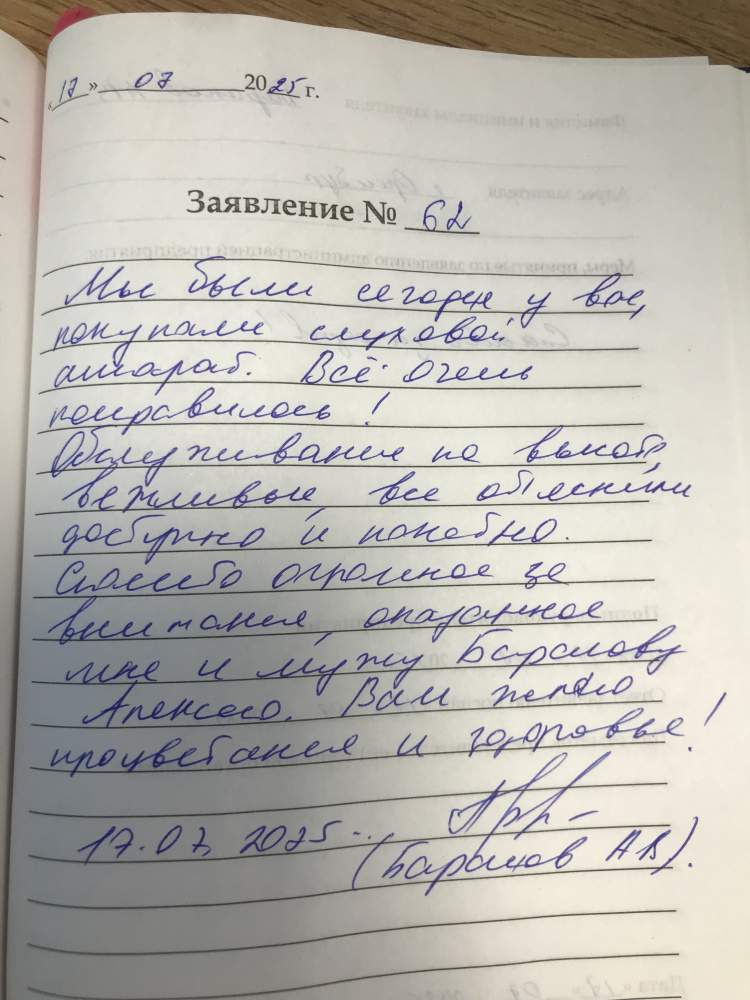 «17» 07 2025 г.
Заявление № 62
Мы были сегодня у вас,
покупали слуховой
аппарат. Всё очень
понравилось!
Обслуживание на высоте,
вежливые, все объяснили
доступно и понятно.
Спасибо огромное за
внимание, оказанное
мне и мужу
Вам желаю
процветания и здоровья!
17.07.2025
(А В).